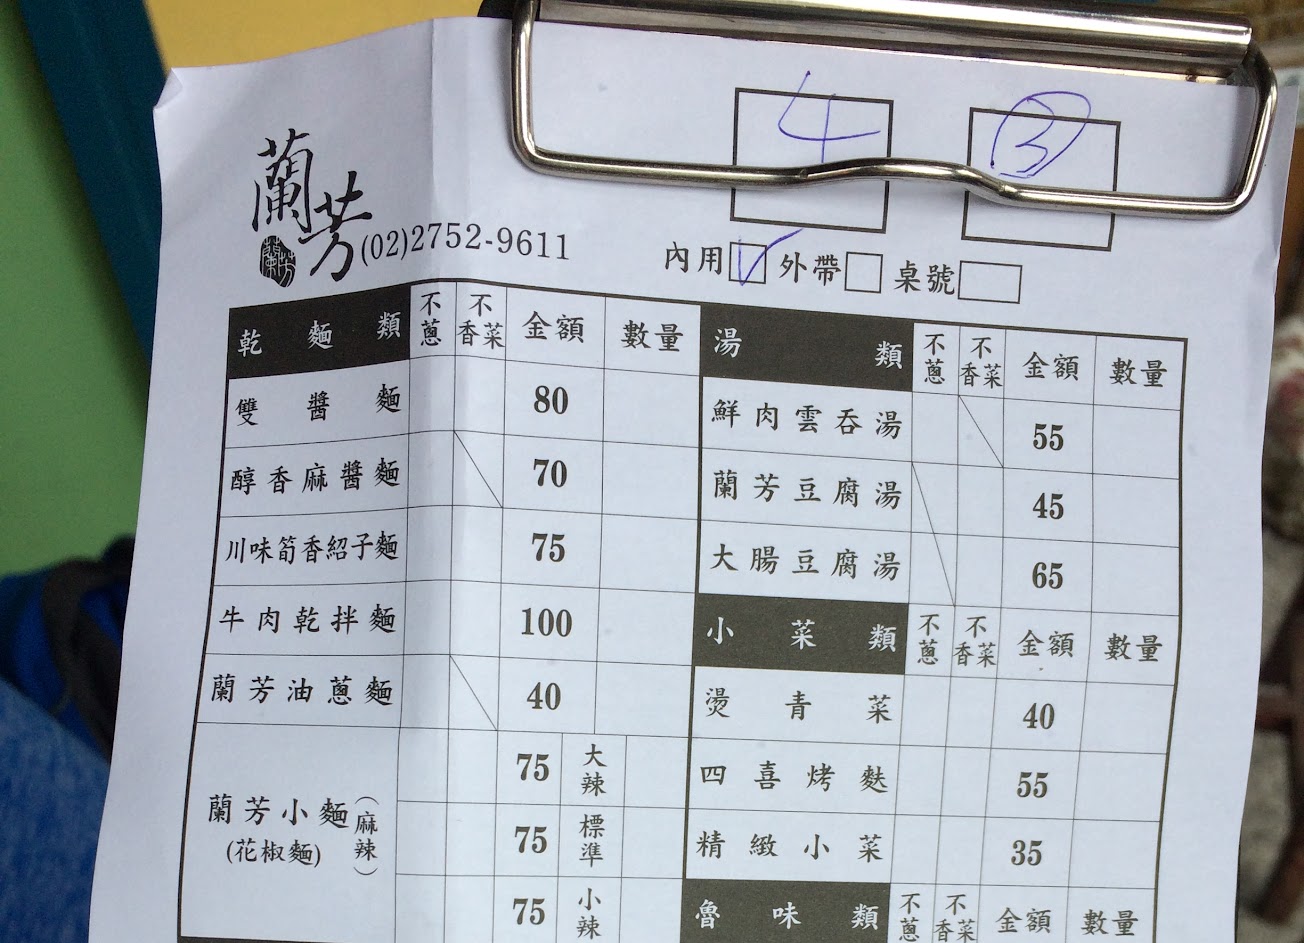 4 3
蘭芳
蘭芳
(02)2752-9611
內用 ✓ 外帶 桌號
乾麵類 不蔥 不香菜 金額 數量
雙醬麵 80
醇香麻醬麵 70
川味筍香紹子麵 75
牛肉乾拌麵 100
蘭芳油蔥麵 40
蘭芳小麵(麻辣)
(花椒麵)
75 大辣
75 標準
75 小辣
湯類 不蔥 不香菜 金額 數量
鮮肉雲吞湯 55
蘭芳豆腐湯 45
大腸豆腐湯 65
小菜類 不蔥 不香菜 金額 數量
燙青菜 40
四喜烤麩 55
精緻小菜 35
魯味類 不蔥 不香菜 金額 數量